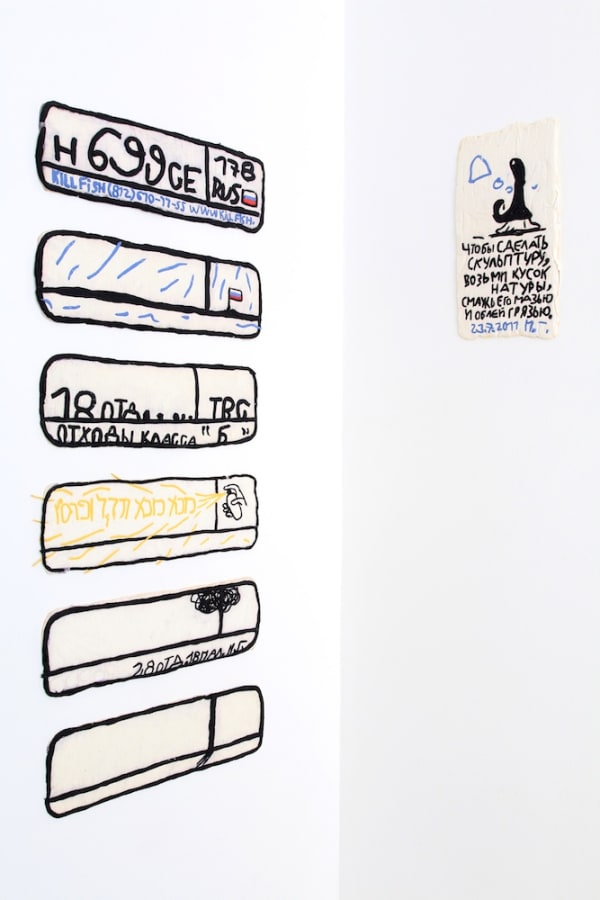 Н 699 СЕ
178
RUS
KILLFISH (812) 670-77-55 WWW.KILLFISH.
18 ОТД.
TRG
ОТХОДЫ КЛАССА "Б"
מנא מנא תקל ופרסין
ЧТОБЫ СДЕЛАТЬ
СКУЛЬПТУРУ,
ВОЗЬМИ КУСОК
НАТУРЫ,
СМАЖЬ ЕГО МАЗЬЮ
И ОБЛЕЙ ГРЯЗЬЮ.
23.7.2011 М.Г.